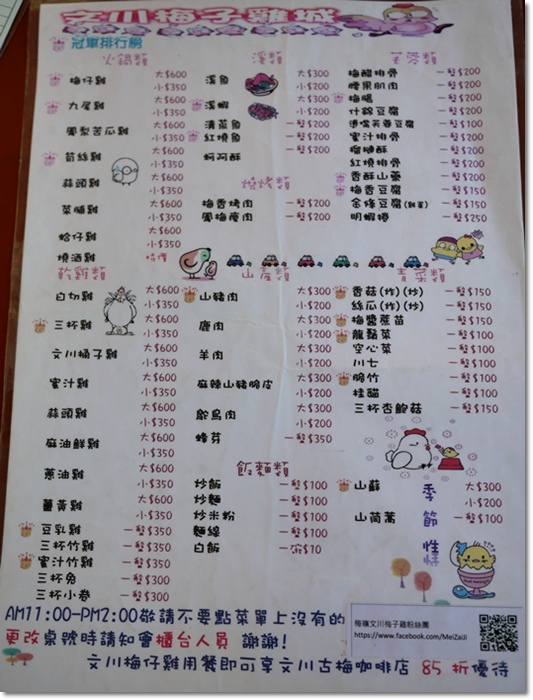 文川梅子雞城
冠軍排行榜
火鍋類
梅仔雞 大$600
小$350
九尾雞 大$600
小$350
鳳梨苦瓜雞 大$600
小$350
筍絲雞 大$600
小$350
蒜頭雞 大$600
小$350
菜脯雞 大$600
小$350
蛤仔雞 大$600
小$350
燒酒雞 特價
溪類
溪魚 大$300
小$200
溪蝦 大$300
小$200
清蒸魚 一盤$200
紅燒魚 一盤$200
蚵仔酥 一盤$200
燒烤類
梅香烤肉 一盤$200
鳳梅鹿肉 一盤$200
芙蓉類
梅醋排骨 一盤$200
腰果肌肉 一盤$200
梅腸 一盤$200
什錦豆腐 一盤$200
一盤$100
蜜汁排骨 一盤$200
一盤$200
紅燒排骨 一盤$200
香酥山藥 一盤$150
梅香豆腐 一盤$150
金條豆腐 一盤$150
明蝦捲 一盤$250
乾雞類
白切雞 大$600
小$350
三杯雞 大$600
小$350
文川橘子雞 大$600
小$350
蜜汁雞 大$600
小$350
蒜頭雞 大$600
小$350
麻油鮮雞 大$600
小$350
蔥油雞 大$600
小$350
薑黃雞 大$600
小$350
豆乳雞 一盤$350
三杯竹雞 一盤$350
蜜汁竹雞 一盤$350
三杯兔 一盤$300
三杯小卷 一盤$300
山產類
山豬肉 大$300
小$200
鹿肉 大$300
小$200
羊肉 大$300
小$200
麻辣山豬脆皮 大$300
小$200
鴕鳥肉 大$300
小$200
蜂芽 一盤$350
飯麵類
炒飯 一盤$100
炒麵 一盤$100
炒米粉 一盤$100
麵線 一盤$100
白飯 $10
青菜類
香菇(炸)(炒) 一盤$150
絲瓜(炸)(炒) 一盤$150
梅醬蔗苗 一盤$150
龍鬚菜 一盤$100
空心菜 一盤$100
川七 一盤$100
脆竹 一盤$100
一盤$100
三杯杏鮑菇 一盤$150
季節性
山蘇 大$300
小$200
山茼蒿 一盤$100
AM11:00-PM2:00敬請不要點菜單上沒有的
更改桌號時請知會櫃台人員 謝謝!
文川梅仔雞用餐即可享文川古梅咖啡店 85 折優待
梅嶺文川梅子雞粉絲團
https://www.facebook.com/MeiZaiJi